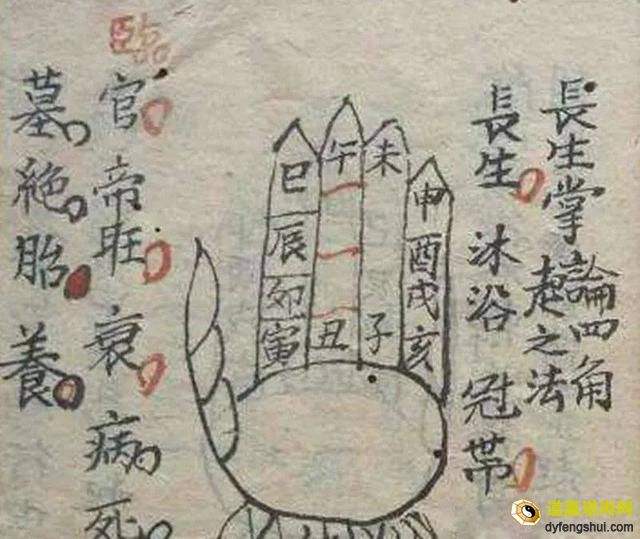 長生掌論四角
起之法
長生 沐浴 冠帶
臨
官 帝旺 衰 病 死
墓 絕 胎 養
巳 午 未 申
辰 酉
卯 戌
寅 丑 子 亥
道富港商网
dyfengshui.com